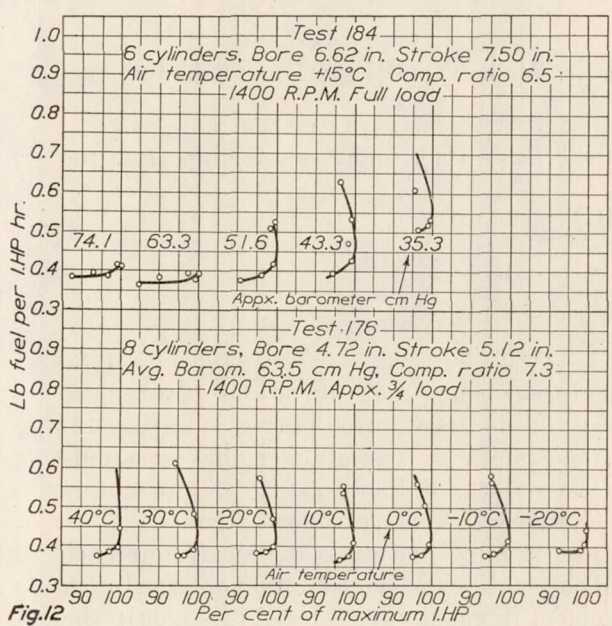 Test 184
6 cylinders, Bore 6.62 in. Stroke 7.50 in.
Air temperature +15°C Comp. ratio 6.5
1400 R.P.M. Full load
1.0
0.9
0.8
0.7
0.6
0.5
0.4
0.3
74.1 63.3 51.6 43.3 35.3
Appx. barometer cm Hg
Lb fuel per I.HP hr.
Test 176
8 cylinders, Bore 4.72 in. Stroke 5.12 in.
Avg. Barom. 63.5 cm Hg, Comp. ratio 7.3
1400 R.P.M. Appx. 3/4 load
0.9
0.8
0.7
0.6
0.5
0.4
0.3
40°C 30°C 20°C 10°C 0°C -10°C -20°C
Air temperature
90 100 90 100 90 100 90 100 90 100 90 100 90 100
Per cent of maximum I.HP
Fig.12